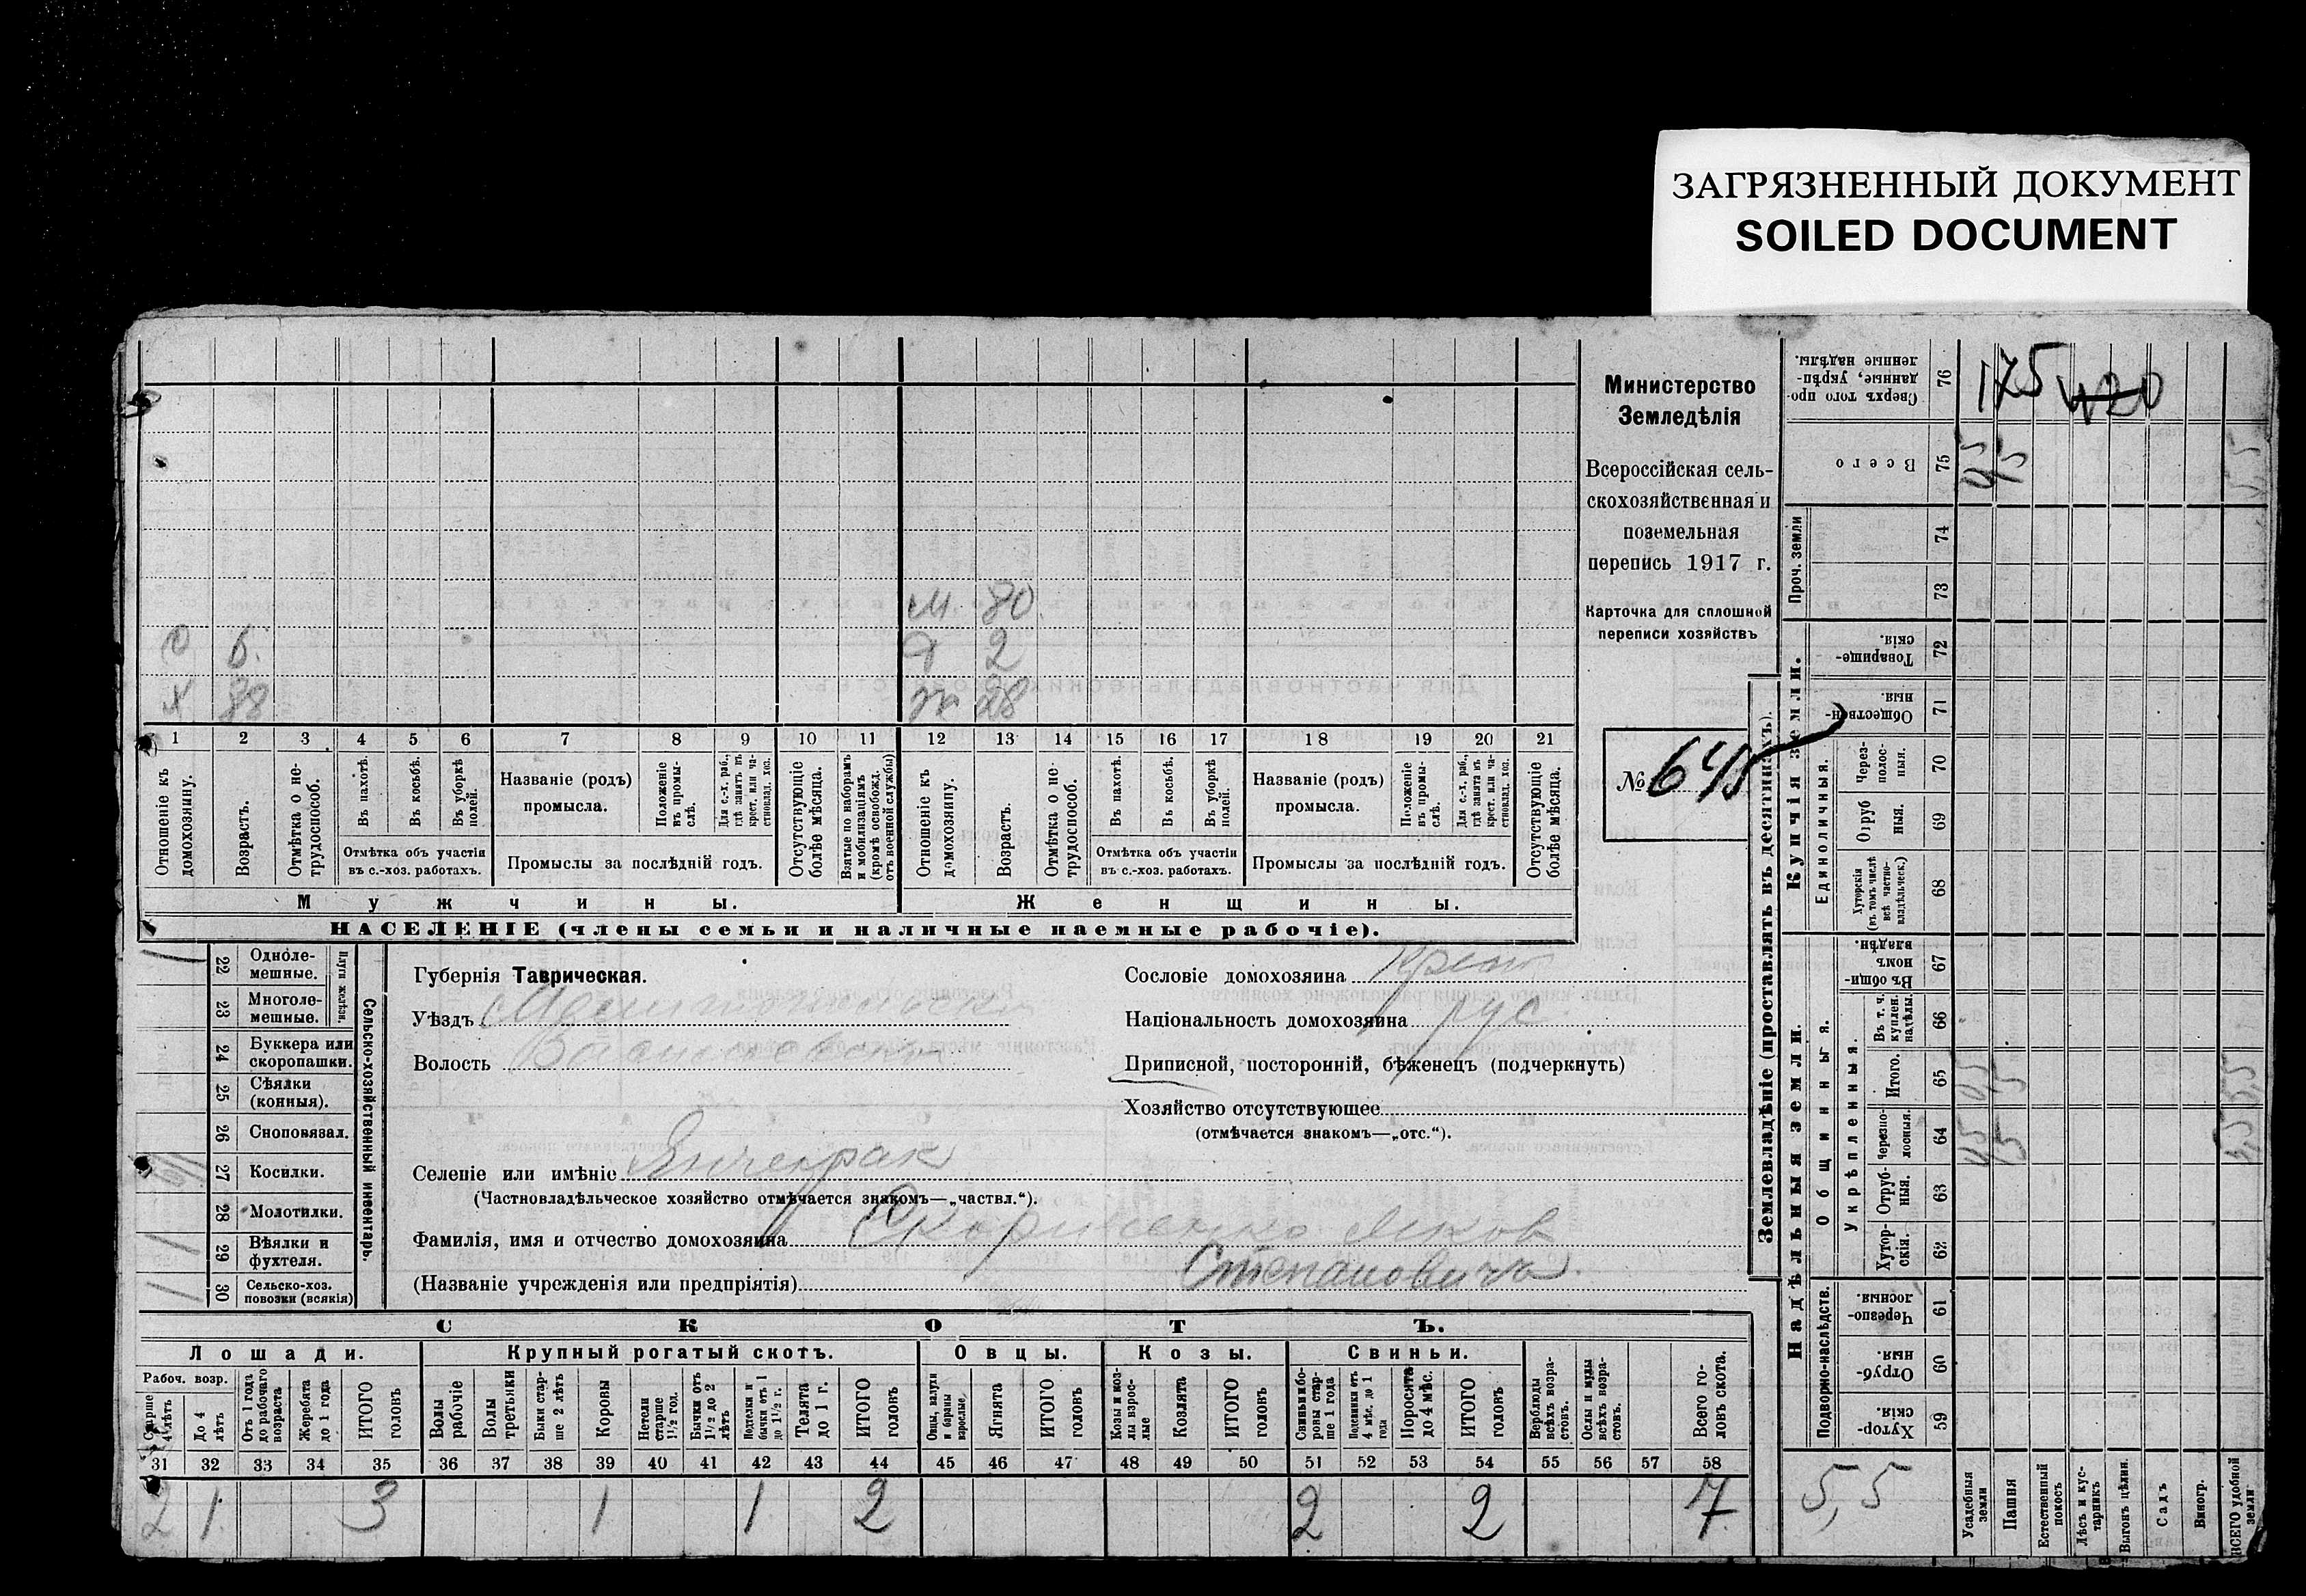 ЗАГРЯЗНЕННЫЙ ДОКУМЕНТ
SOILED DOCUMENT
Министерство
Земледѣлія
Всероссійская сель-
скохозяйственная и
поземельная
перепись 1917 г.
Карточка для сплошной
переписи хозяйствъ
№ 648
М 80
О 6. 2
Х 38 28
1 2 3 4 5 6 7 8 9 10 11 12 13 14 15 16 17 18 19 20 21
Отношеніе къ домохозяину.
Возрастъ.
Отмѣтка о не-трудоспособ.
Въ пахотѣ.
Въ косьбѣ.
Въ уборкѣ полей.
Отмѣтка объ участіи
въ с.-хоз. работахъ.
Названіе (родъ)
промысла.
Положеніе въ промы-слѣ.
Для с.-х. раб., гдѣ занятъ въ крест. или ча-стновлад. хоз.
Промыслы за послѣдній годъ.
Отсутствующіе болѣе мѣсяца.
Взятые по наборамъ и мобилизаціямъ (кромѣ освобожд. отъ военной службы)
Отношеніе къ домохозяину.
Возрастъ.
Отмѣтка о не-трудоспособ.
Въ пахотѣ.
Въ косьбѣ.
Въ уборкѣ полей.
Отмѣтка объ участіи
въ с.-хоз. работахъ.
Названіе (родъ)
промысла.
Положеніе въ промы-слѣ.
Для с.-х. раб., гдѣ занята въ крест. или ча-стновлад. хоз.
Промыслы за послѣдній годъ.
Отсутствующіе болѣе мѣсяца.
Мужчины. Женщины.
НАСЕЛЕНІЕ (члены семьи и наличные наемные рабочіе).
22 Одноле-мешные.
23 Многоле-мешные.
Плуги желѣзн.
24 Буккера или скоропашки.
25 Сѣялки (конныя).
26 Сноповязал.
27 Косилки.
28 Молотилки.
29 Вѣялки и фухтеля.
30 Сельско-хоз. повозки (всякія)
Сельско-хозяйственный инвентарь.
Губернія Таврическая.
Уѣздъ Мелитопольский
Волость Васильевская
Селеніе или имѣніе Янчекрак
(Частновладѣльческое хозяйство отмѣчается знакомъ—„частвл.“).
Фамилія, имя и отчество домохозяина Скориченко Яков
(Названіе учрежденія или предпріятія) Степановичъ.
Сословіе домохозяина Крест
Національность домохозяина рус.
Приписной, посторонній, бѣженецъ (подчеркнуть)
Хозяйство отсутствующее
(отмѣчается знакомъ—„отс.“).
СКОТЪ.
Лошади. Крупный рогатый скотъ. Овцы. Козы. Свиньи.
Рабоч. возр.
Старше 4 лѣтъ
До 4 лѣтъ
Отъ 1 года до рабочаго возраста
Жеребята до 1 года
ИТОГО головъ
Волы рабочіе
Волы третьяки
Быки стар-ше 2 лѣтъ
Коровы
Нетели старше 1½ год.
Бычки отъ 1½ до 2 лѣтъ
Подтелки и бычки отъ 1 до 1½ г.
Телята до 1 г.
ИТОГО головъ
Овцы, валухи и бараны взрослые
Ягнята
ИТОГО головъ
Козы и коз-лы взрос-лые
Козлята
ИТОГО головъ
Свиньи и бо-ровы стар-ше 1 года
Подсвинки отъ 4 мѣс. до 1 года
Поросята до 4 мѣс.
ИТОГО головъ
Верблюды всѣхъ возра-стовъ.
Ослы и мулы всѣхъ возра-стовъ.
Всего го-ловъ скота.
31 32 33 34 35 36 37 38 39 40 41 42 43 44 45 46 47 48 49 50 51 52 53 54 55 56 57 58
2 1 3 1 1 2 2 2 7
Землевладѣніе (проставлять въ десятинахъ).
Надѣльныя земли. Купчія земли.
Подворно-наслѣдств.
Общинныя.
Укрѣпленныя.
Единоличныя.
Проч. земли
Сверхъ того про-данные, укрѣп-ленные надѣлы. 76 175 420
Всего 75
74
73
Товарище-скія. 72
Обществен-ныя. 71
Через-полос-ныя. 70
Отруб-ныя. 69
Хуторскія (въ томъ числѣ всѣ частно-владѣльческ.) 68
Въ общин-номъ владѣн. 67
Въ т. ч. куплен. надѣлы. 66
Итого. 65
Черезпо-лосныя. 64
Отруб-ныя. 63
Хутор-скія. 62
Черезпо-лосныя. 61
Отруб-ныя. 60
Хутор-скія. 59
5,5
Усадебныя земли
Пашня
Естественный покосъ
Лѣсъ и кус-тарникъ
Выгонъ цѣлин.
Садъ
Виногр.
ВСЕГО удобной земли